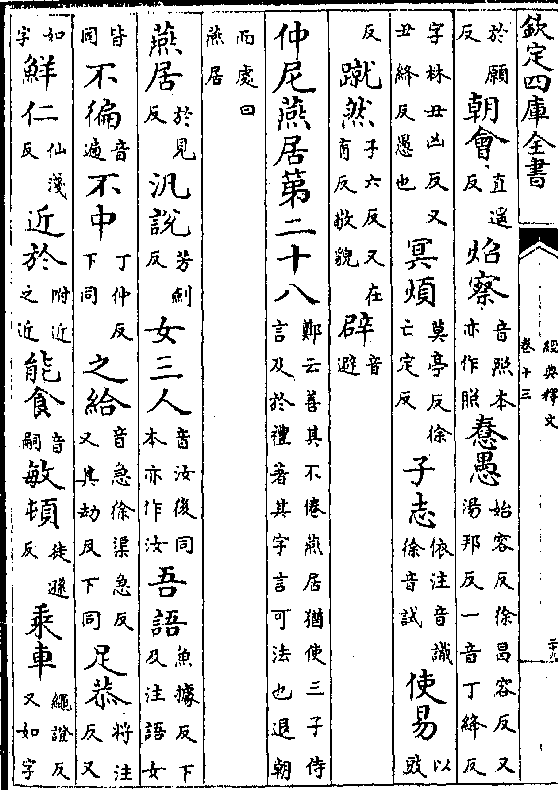 欽定四庫全書
經典釋文
卷十三
於願反 朝會 直遥反 炤察 音照本亦作照 惷愚 始容反徐昌容反又湯邦反一音丁絳反
字林丑凶反又丑絳反愚也 冥煩 莫亭反徐亡定反 子志 依注音識徐音試 使易 以豉
反 蹴然 子六反又在育反敬貌 辟 音避
仲尼燕居第二十八 鄭云善其不倦燕居猶使三子侍言及於禮著其字言可法也退朝
而處曰燕居
燕居 於見反 汎說 芳劒反 女三人 音汝後同本亦作汝 吾語 魚據反下及注語女
皆同 不徧 音遍 不中 丁仲反下同 之給 音急徐渠急反又其劫反下同 足恭 將注反又
如字 鮮仁 仙淺反 近於 附近之近 能食 音嗣 敏頓 徒遜反 乘車 繩證反又如字